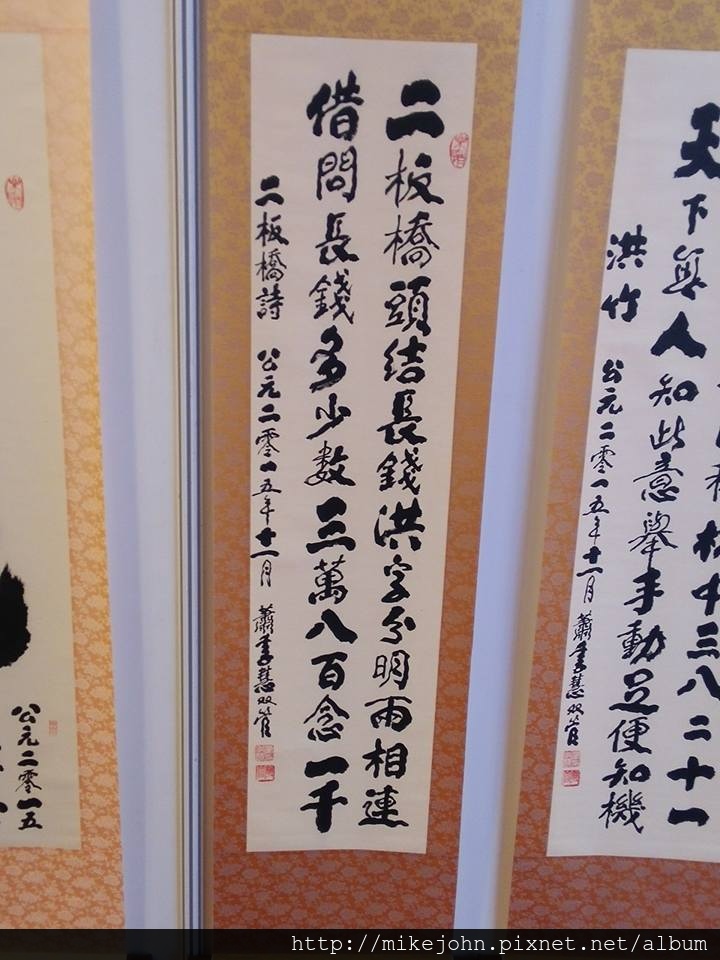 天下無人知此意舉手動足便知機
洪竹 公元二零一五年十一月 蕭李慧双管
二板橋頭結長錢洪字分明兩相連
借問長錢多少數三萬八百念一千
二板橋詩 公元二零一五年十一月 蕭李慧双管
公元二零一五
http://mikejohn.pixnet.net/album